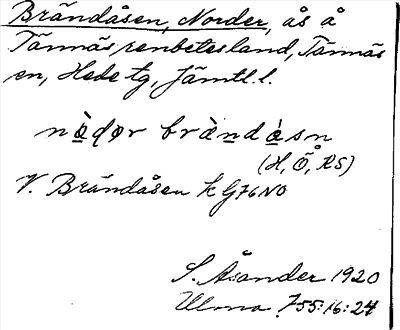 Brändåsen, Norder, ås å
Tännäs renbetesland, Tännäs
sn, Hede tg, Jämtl. l.
nòḍọr brạ̀ndạ̀sn
(H, Ö, RS)
V. Brändåsen k G76NO
S. Åsander 1920
Ulma 755:16:24